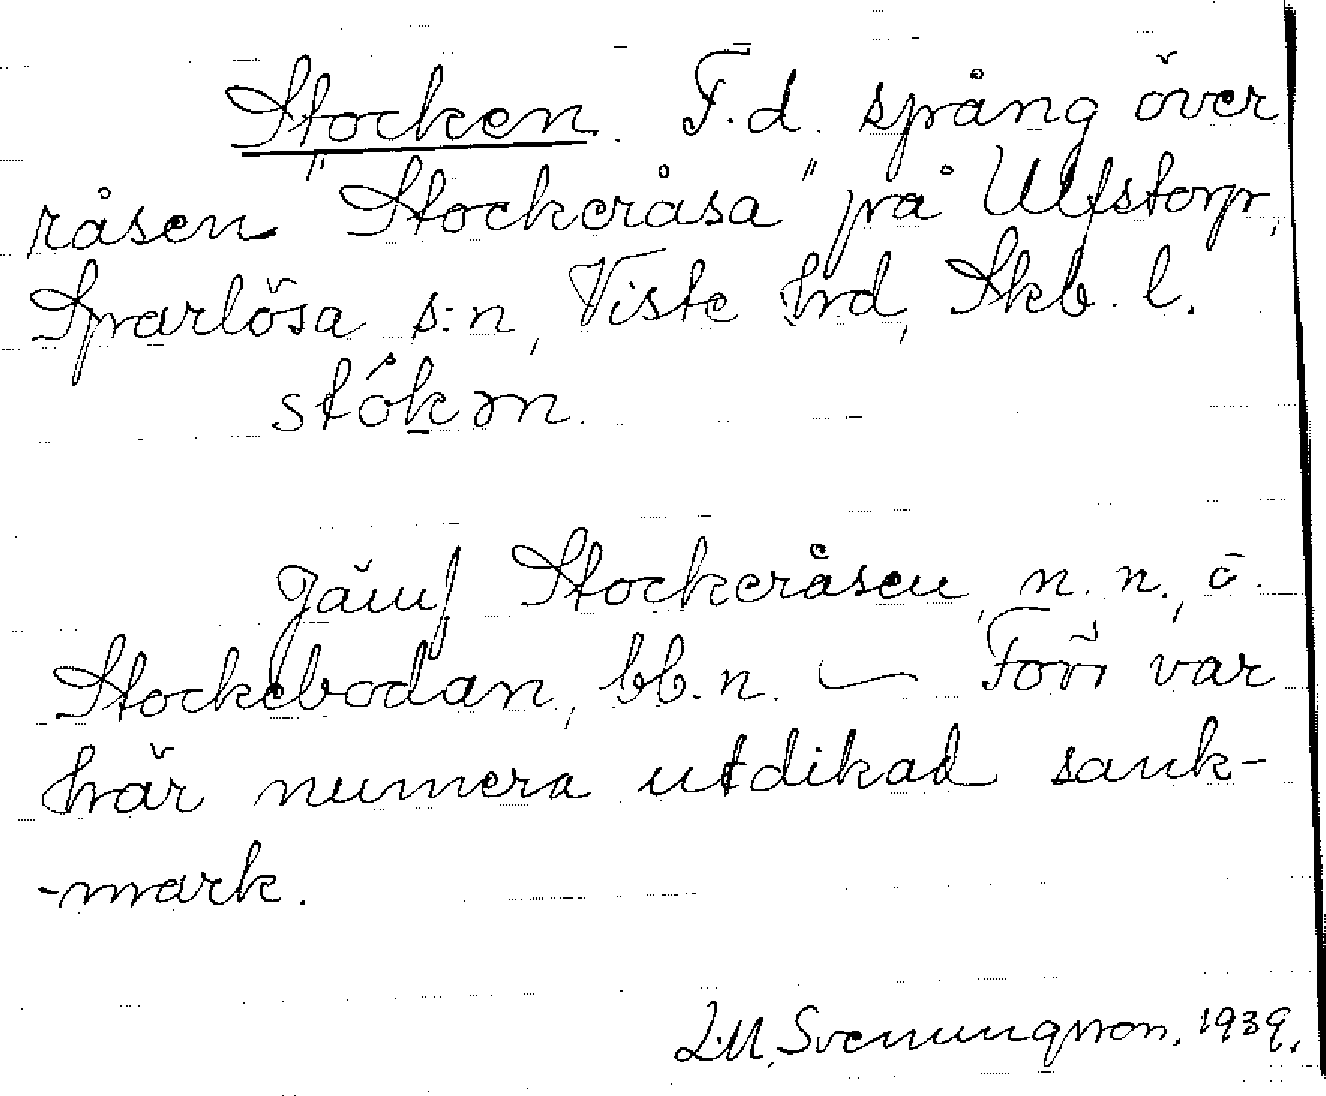 Stocken. F.d. spång över
råsen "Stockeråsa" på Ulfstorp,
Sparlösa s:n, Viste hrd, Skb. l.
stók̠ən.
Jämf Stockeråsen, n. n., o.
Stockebodan, bb. n. — Förr var
här numera utdikad sank-
-mark.
L.M. Svenungsson. 1939.